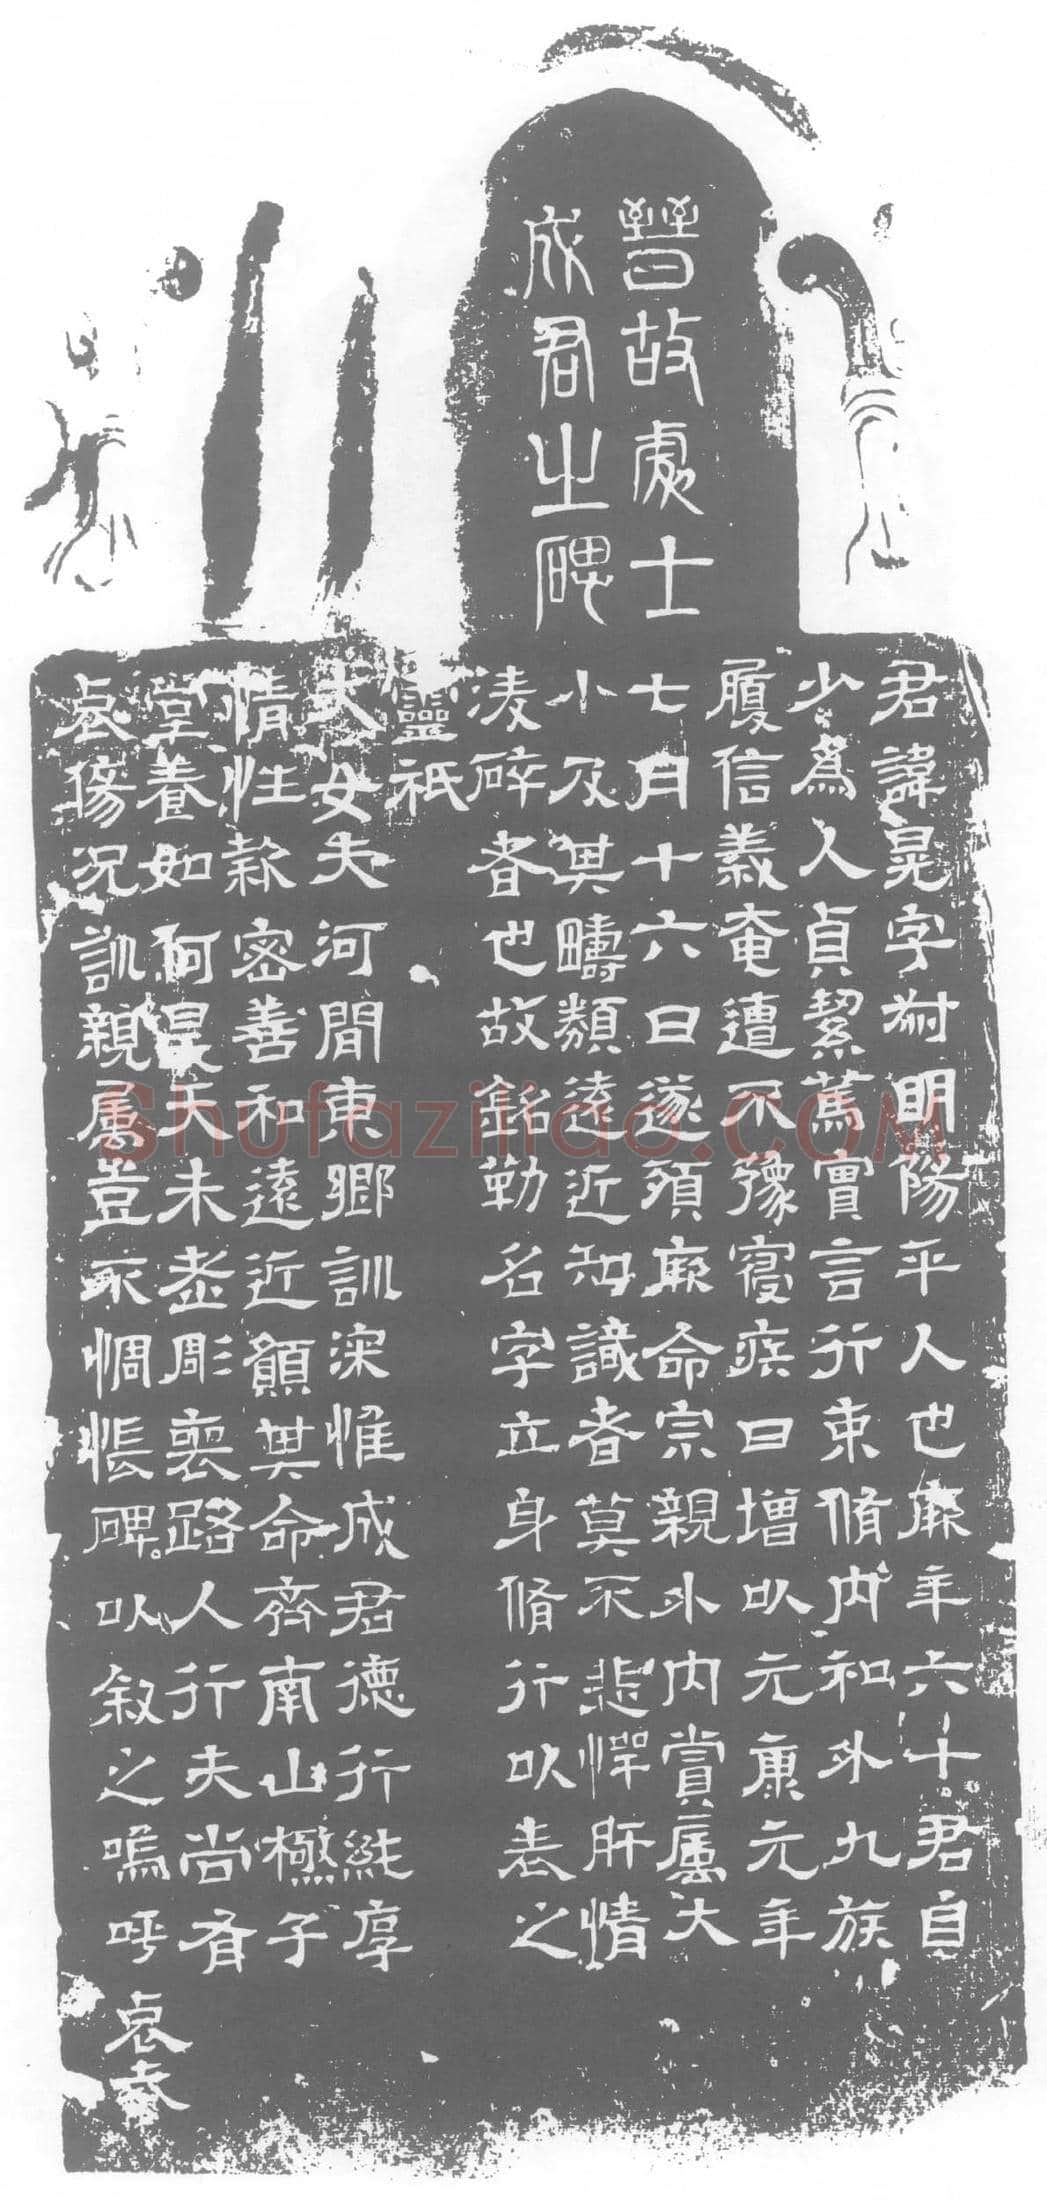 晉故處士
成君之碑
君諱晃字叔明陽平人也厥年六十君自
少爲人貞絜篤實言行束脩內和外九族
履信義奄遭不豫寑疾日增以元康元年
七月十六日遂殞厥命宗親外內賞属大
小及其疇類遠近知識者莫不悲憚肝情
淩碎者也故銘勒名字立身脩行以表之
靈祇
大女夫河間東鄉訓深惟成君德行純厚
情性款密善和遠近願其命齊南山極子
堂養如何昊天未老彫喪路人行夫尚有
哀傷況訓親属豈不惆悵碑以叙之嗚呼哀
Shufaziliao.COM